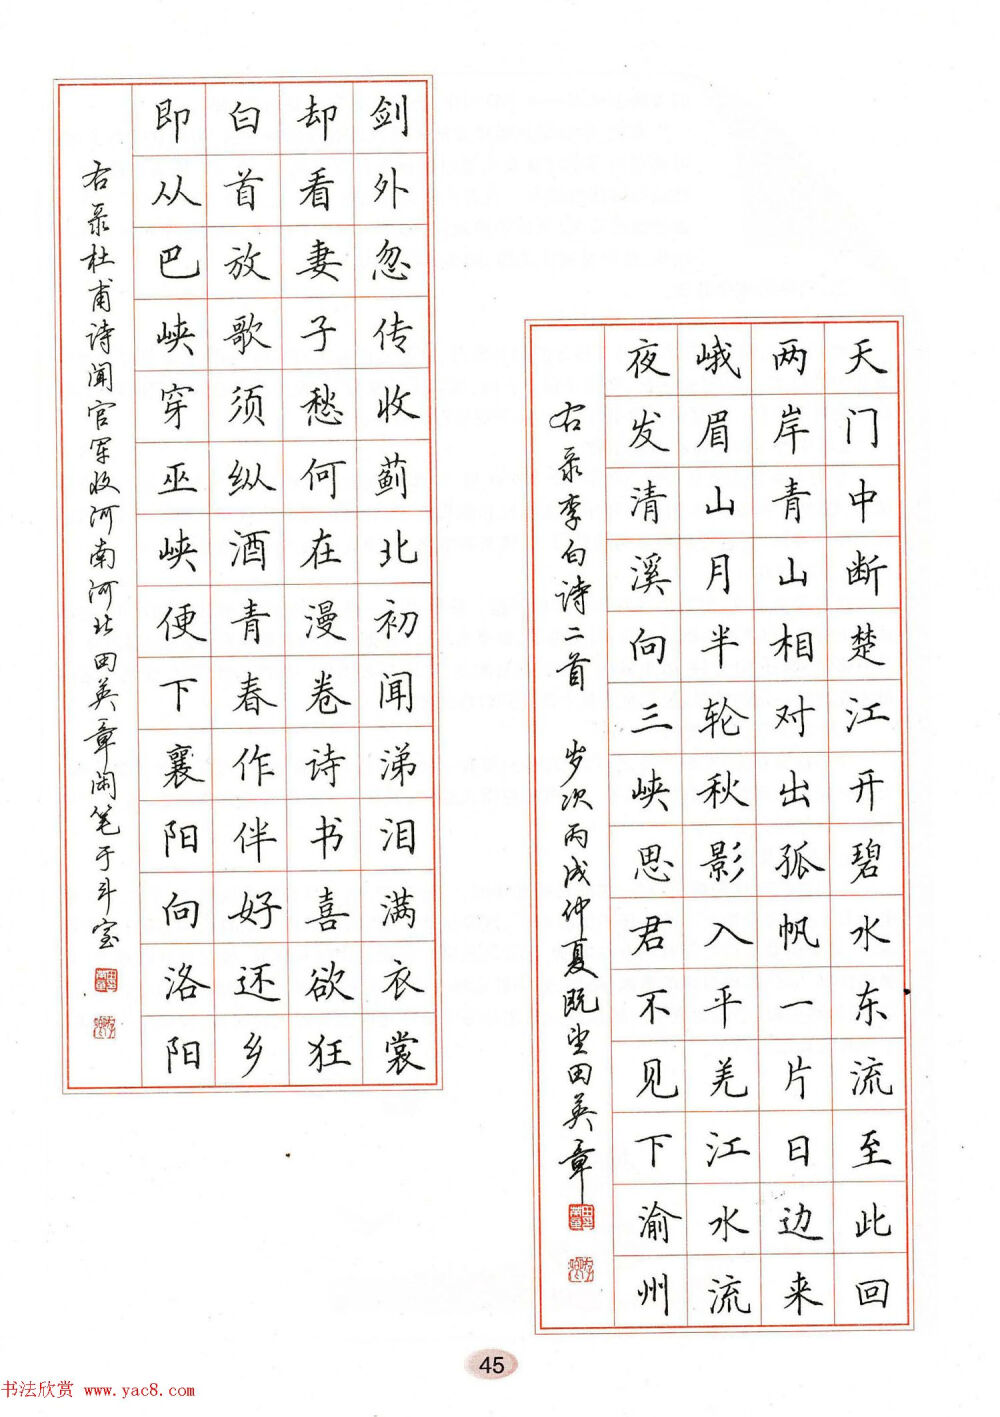 天门中断楚江开碧水东流至此回
两岸青山相对出孤帆一片日边来
峨眉山月半轮秋影入平羌江水流
夜发清溪向三峡思君不见下渝州
右录李白诗二首 岁次丙戌仲夏既望田英章
剑外忽传收蓟北初闻涕泪满衣裳
却看妻子愁何在漫卷诗书喜欲狂
白首放歌须纵酒青春作伴好还乡
即从巴峡穿巫峡便下襄阳向洛阳
右录杜甫诗闻官军收河南河北田英章闲笔于斗室
45
书法欣赏 www.yac8.com